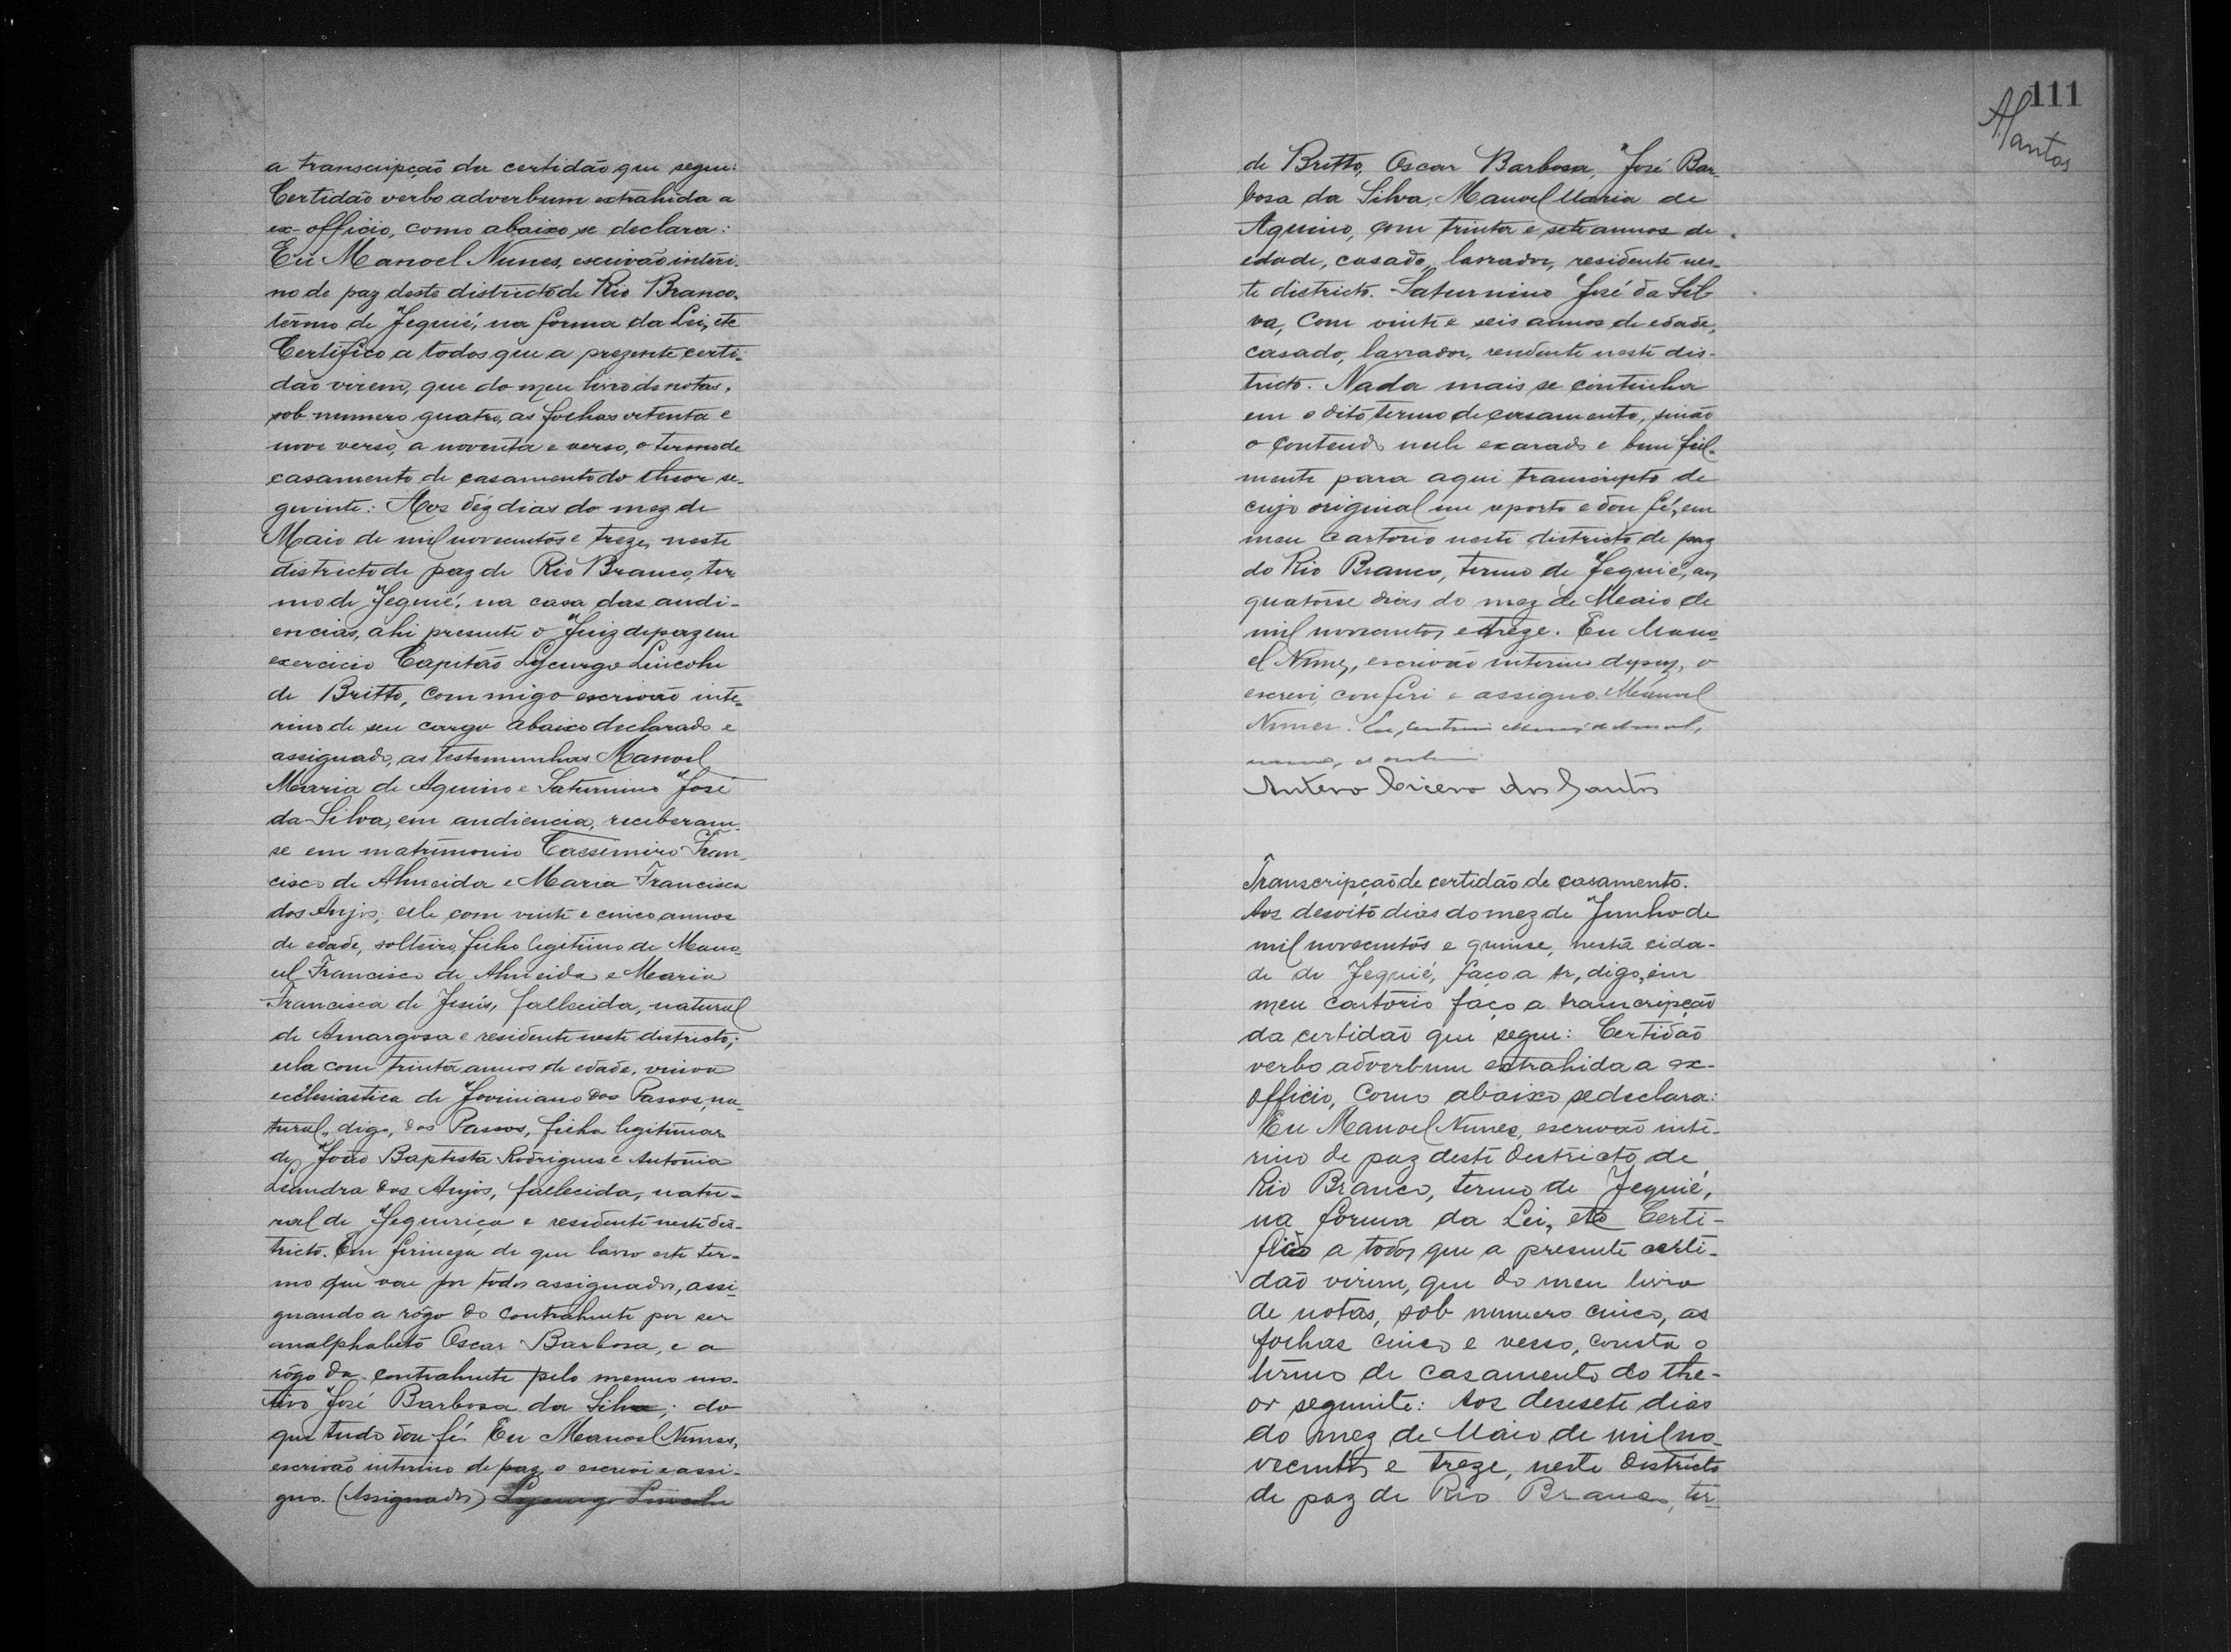 a transcripção da certidão que segue:
Certidão verbo adverbum extrahida a
ex-officio, como abaixo se declara:
Eu Manoel Nunes, escrivão interi-
no de paz deste districto de Rio Branco,
termo de Jequié, na forma da Lei, etc
Certifico a todos que a prezente certi-
dão virem, que do meu livro de notas,
sob numero quatro, as folhas oitenta e
nove verso, a noventa e verso, o termo de
casamento de casamento do theor se-
guinte: Aos déz dias do mez de
Maio de mil novecentos e treze, neste
districto de paz de Rio Branco, ter-
mo de Jequié, na casa das audi-
encias, ahi presente o Juiz de paz em
exercicio Capitão Lycurgo Lincoln
de Britto, commigo escrivão inte-
rino de seu cargo abaixo declarado e
assignado, as testemunhas Manoel
Maria de Aquino e Saturnino José
da Silva, em audiencia, receberam-
se em matrimonio Cassemiro Fran-
cisco de Almeida e Maria Francisca
dos Anjos; elle com vinte e cinco annos
de edade, solteiro, filho legitimo de Mano-
el Francisco de Almeida e Maria
Francisca de Jesús, fallecida, natural
de Amargosa e residente neste districto;
ella com trinta annos de edade, viuva
ecclesiastica de Joviniano dos Passos, na-
tural, digo, dos Passos, filha legitima
de João Baptista Rodrigues e Antonia
Leandra dos Anjos, fallecida, natu-
ral de Jequiriça e residente neste dis-
tricto. Em firmeza de que lavro este ter-
mo que vae por todos assignados, assi-
gnando a rôgo do contrahente por ser
analphabeto Oscar Barbosa, e a
rôgo da contrahente pelo mesmo mo-
tivo José Barbosa da Silva; do
que tudo dou fé. Eu Manoel Nunes,
escrivão interino de paz o escrevi e assi-
gno. (Assignados) Lycurgo Lincoln
111
ASantos
de Britto, Oscar Barbosa, José Bar-
bosa da Silva, Manoel Maria de
Aquino, com trinta e sete annos de
edade, casado, lavrador, residente nes-
te districto. Saturnino José da Sil-
va, com vinte e seis annos de edade,
casado, lavrador, rendente neste dis-
tricto. Nada mais se continha
em o dito termo de casamento, sinão
o contendo nelle exarado e bem fiel-
mente para aqui transcripto de
cujo original me reporto e dou fé, em
meu Cartorio neste districto de paz
do Rio Branco, termo de Jequié, aos
quatorse dias do mez de Maio de
mil novecentos e treze. Eu Mano-
el Nunes, escrivão interino de paz, o
escrevi, conferi e assigno. Manoel
Nunes. Eu,
Antero Cicero dos Santos
Transcripção de certidão de casamento.
Aos desoito dias do mez de Junho de
mil novecentos e quinse, nesta cida-
de de Jequié, faço a tr, digo, em
meu cartorio faço a transcripção
da certidão que segue: Certidão
verbo adverbum extrahida a ex-
officio, como abaixo se declara:
Eu Manoel Nunes, escrivão inte-
rino de paz deste districto de
Rio Branco, termo de Jequié,
na forma da Lei, etc Certi-
fico a todos que a presente certi-
dão virem, que do meu livro
de notas, sob numero cinco, as
folhas cinco e verso, consta o
termo de casamento do the-
or seguinte: Aos desesete dias
do mez de Maio de mil no-
vecentos e treze, neste districto
de paz de Rio Branco, ter-